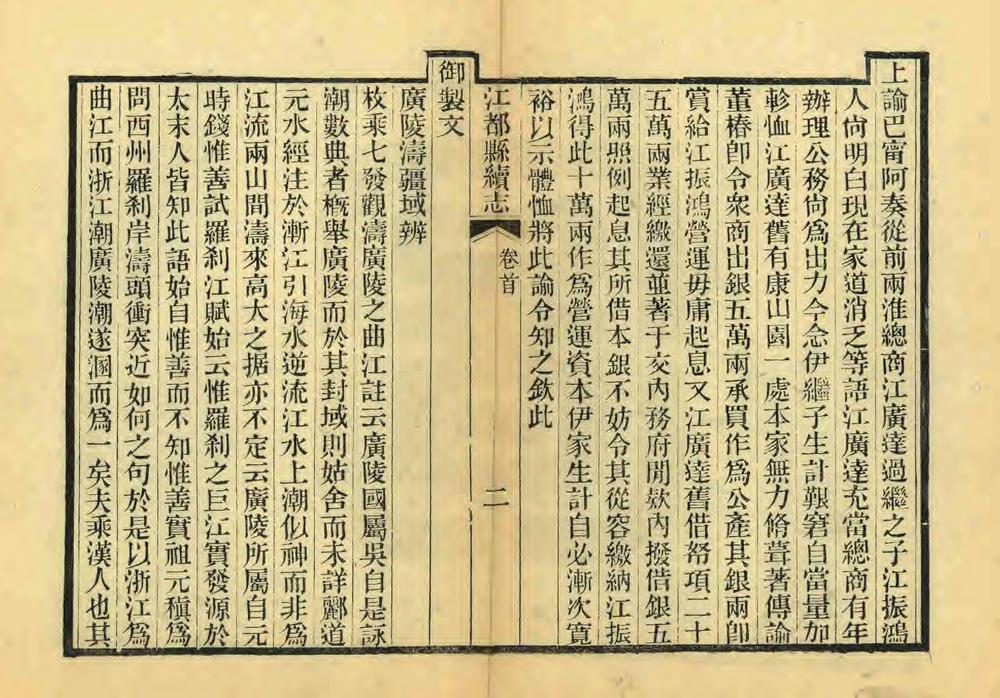 上諭巴甯阿奏從前兩淮總商江廣達過繼之子江振鴻
人尙明白現在家道消乏等語江廣達充當總商有年
辦理公務尙爲出力今念伊繼子生計艱窘自當量加
軫恤江廣達舊有康山園一處本家無力脩葺著傳諭
董椿卽令衆商出銀五萬兩承買作爲公產其銀兩卽
賞給江振鴻營運毋庸起息又江廣達舊借帑項二十
五萬兩業經繳還並著于交內務府閒欵內撥借銀五
萬兩照例起息其所借本銀不妨令其從容繳納江振
鴻得此十萬兩作爲營運資本伊家生計自必漸次寬
裕以示體恤將此諭令知之欽此
江都縣續志 卷首 二
御製文
廣陵濤疆域辨
枚乘七發觀濤廣陵之曲江註云廣陵國屬吳自是詠
潮數典者槪舉廣陵而於其封域則姑舍而未詳酈道
元水經注於漸江引海水逆流江水上潮似神而非爲
江流兩山間濤來高大之据亦不定云廣陵所屬自元
時錢惟善試羅刹江賦始云惟羅刹之巨江實發源於
太末人皆知此語始自惟善而不知惟善實祖元稹爲
問西州羅刹岸濤頭衝突近如何之句於是以浙江爲
曲江而浙江潮廣陵潮遂溷而爲一矣夫乘漢人也其